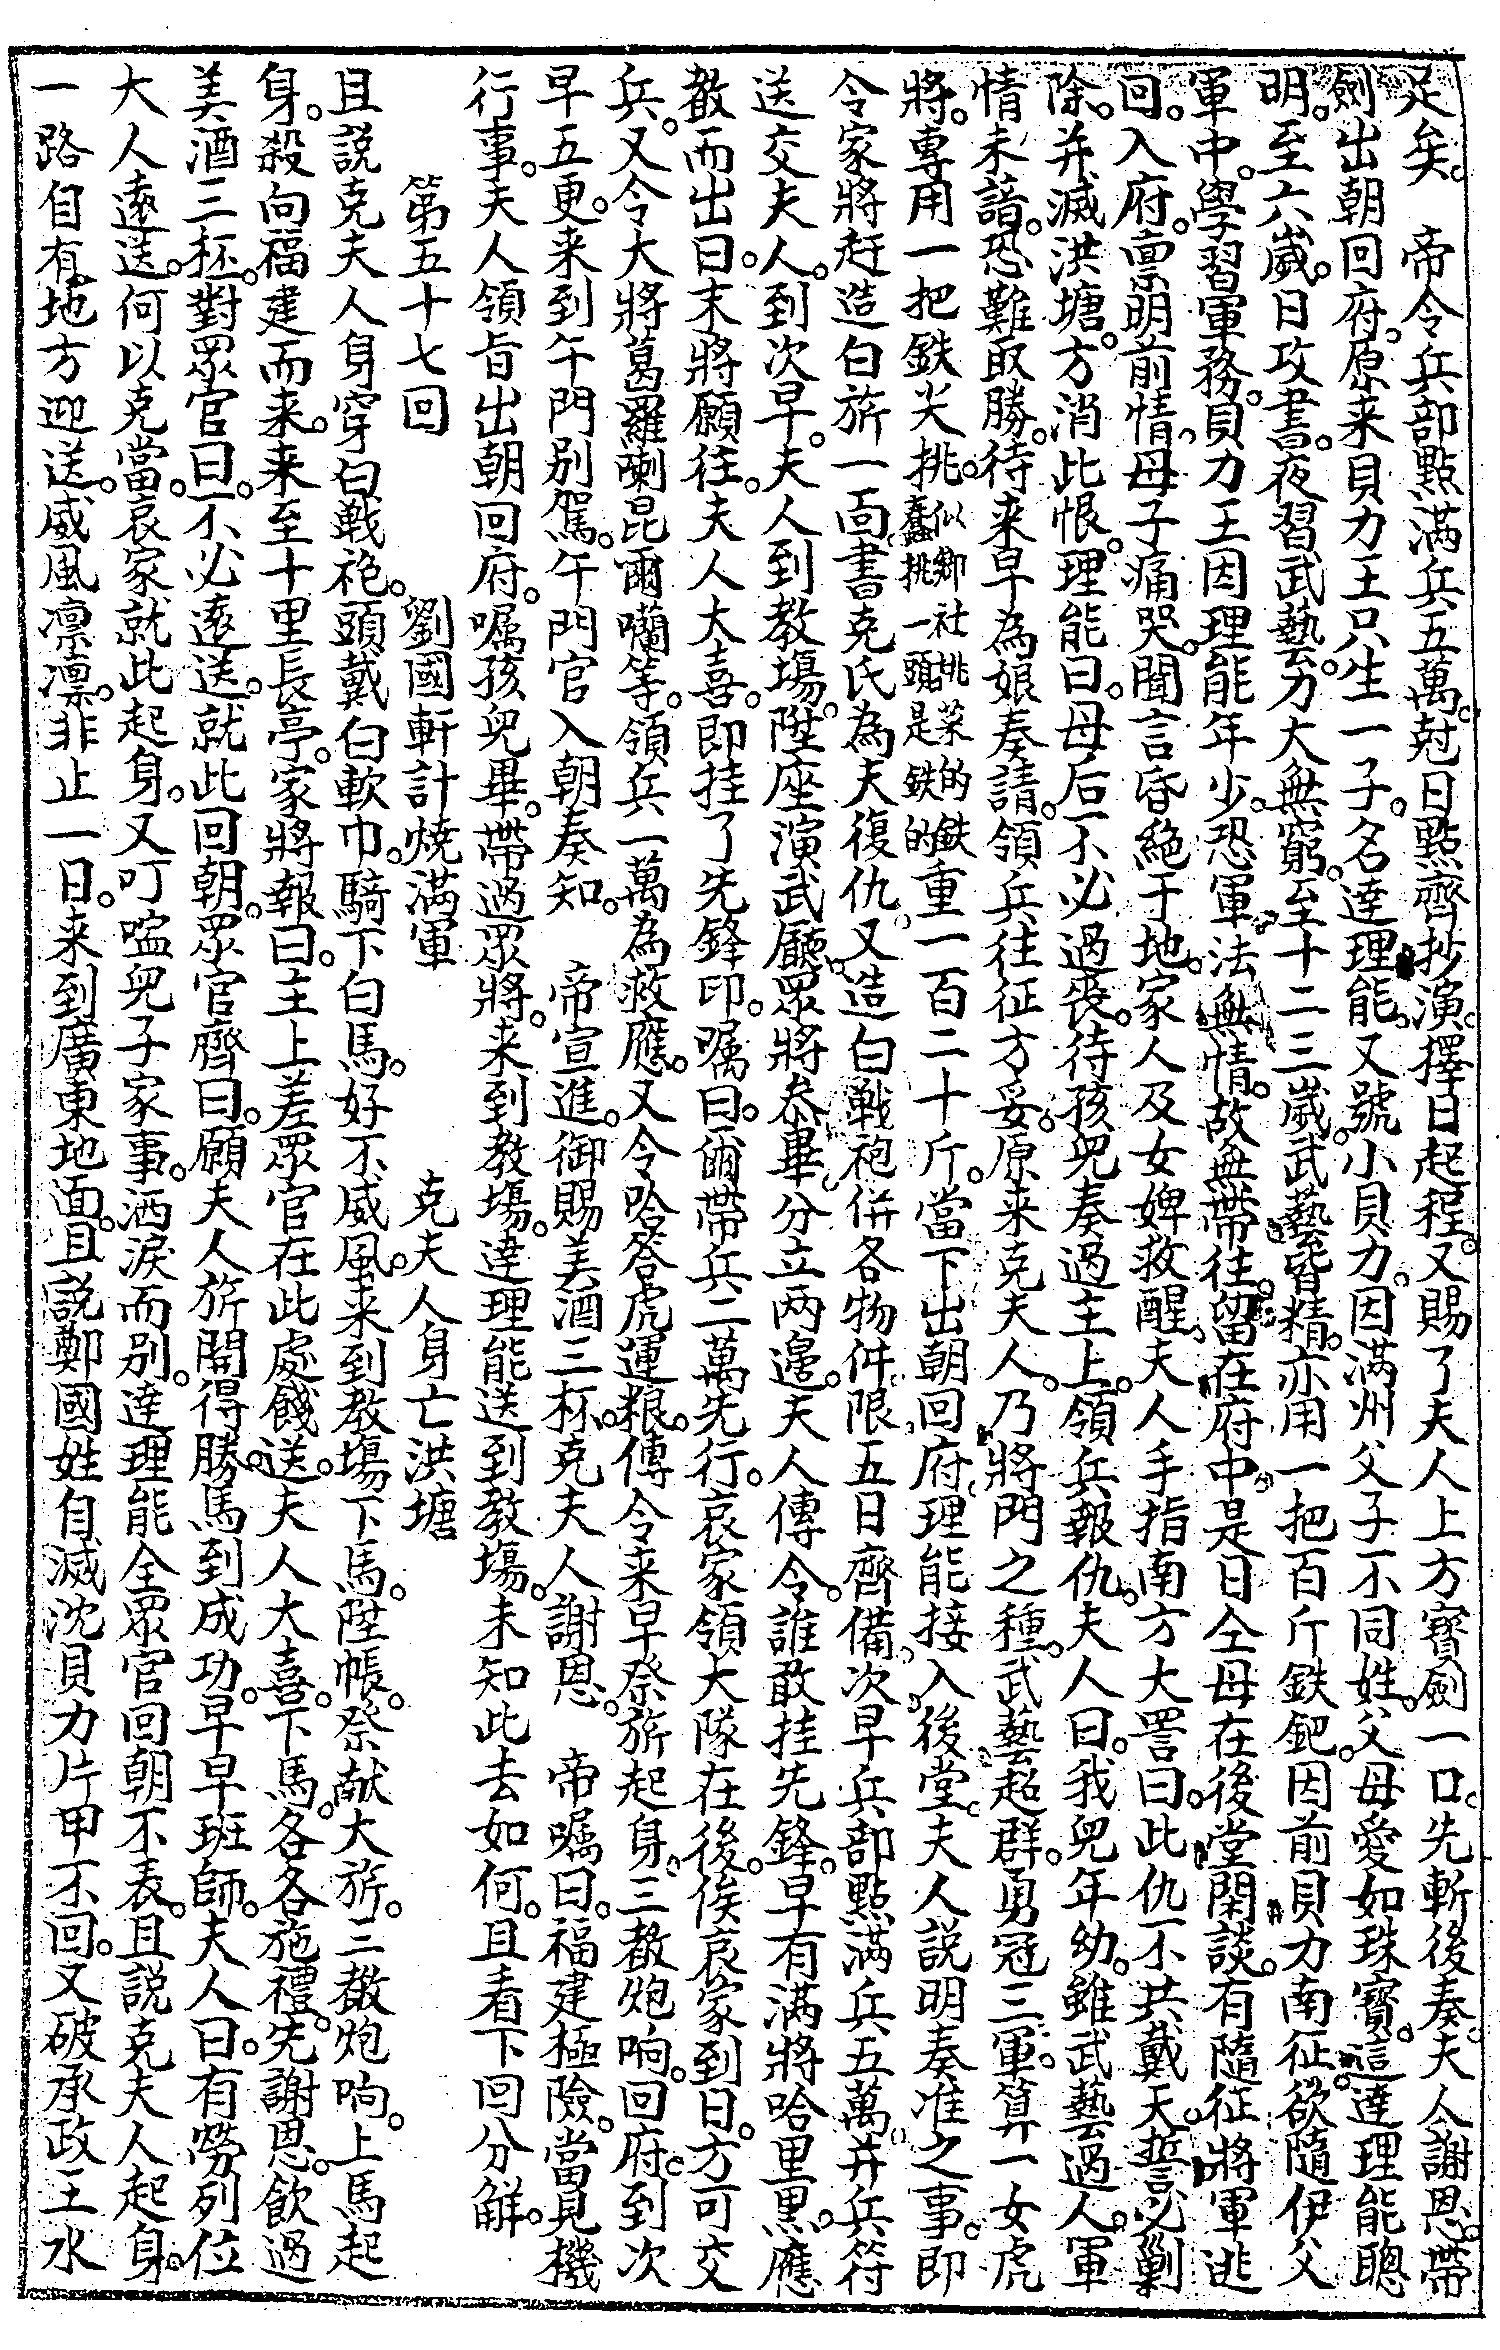 足矣。　帝令兵部點滿兵五萬。尅日點齊抄演。擇日起程。又賜了夫人上方寳劍一口。先斬後奏。夫人謝恩。帶
劍出朝回府。原来貝力王只生一子。名達理能。又號小貝力。因滿州父子不同姓。父母愛如珠寳。這達理能聰
明。至六嵗。日攻書。夜習武藝。力大無窮。至十二三嵗。武藝皆精。亦用一把百斤鉄鈀。因前貝力南征。欲隨伊父
軍中。學習軍務。貝力王因理能年少。恐軍法無情。故無帶往。留在府中。是日仝母在後堂閑談。有隨征將軍逃
回。入府。禀明前情。母子痛哭。聞言昏絶于地。家人及女婢救醒。夫人手指南方大詈曰。此仇不共戴天。誓必剿
除。并滅洪塘。方消此恨。理能曰。母后不必過丧。待孩兒奏過主上。領兵報仇。夫人曰。我兒年幼。雖武藝過人。軍
情未諳。恐難取勝。待来早為娘奏請。領兵往征方妥。原来克夫人。乃將門之種。武藝超群。勇冠三軍。算一女虎
將。專用一把鉄尖挑。似鄉社挑菜的鉄蠢挑一頭是鉄的重一百二十斤。當下出朝回府。理能接入後堂。夫人說明奏准之事。即
令家將赶造白旂一面。書克氏為夫復仇。又造白戰袍。併各物件。限五日齊備。次早兵部點滿兵五萬。并兵符
送交夫人。到次早。夫人到教塲。陞座演武廳。眾將叅畢。分立两邉。夫人傳令。誰敢挂先鋒。早有滿將哈里黑。應
数而出曰。末將願往。夫人大喜。即挂了先鋒印。嘱曰。爾帶兵二萬先行。哀家領大隊在後。俟哀家到日。方可交
兵。又令大將葛羅喇昆爾囒等。領兵一萬為救應。又令哈荅虎運粮。傳令来早祭旂起身。三数炮响。回府。到次
早五更。来到午門别駕。午門官入朝奏知。　帝宣進。御賜美酒三杯。克夫人謝恩。　帝嘱曰。福建極險。當見機
行事。夫人領旨出朝回府。嘱孩兒畢。帶過眾將。来到教塲。達理能送到教塲。未知此去如何。且看下回分觧。
第五十七回　　劉國軒計燒滿軍　　克夫人身亡洪塘
且説克夫人身穿白戰袍。頭戴白軟巾。騎下白馬。好不威風。来到教塲下馬。陞帳。祭献大旂。三数炮响。上馬起
身。殺向福建而来。来至十里長亭。家將報曰。主上差眾官在此處餞送。夫人大喜。下馬。各各施禮。先謝恩。飲過
美酒三杯。對眾官曰。不必遠送。就此回朝。眾官齊曰。願夫人旂開得勝。馬到成功。早早班師。夫人曰。有勞列位
大人遠送。何以克當。哀家就此起身。又叮嚀兒子家事。洒淚而别。達理能仝眾官回朝不表。且説克夫人起身。
一路自有地方迎送。威風凛凛。非止一日。来到廣東地面。且説鄭國姓自滅沈貝力片甲不回。又破承政王水